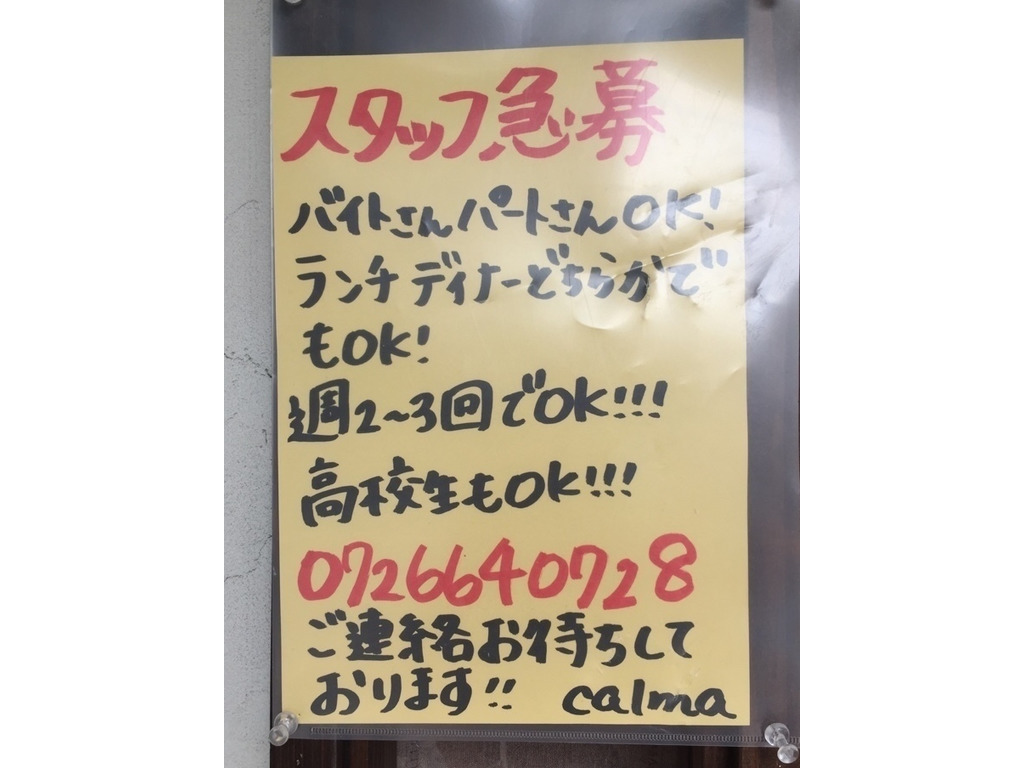 スタッフ急募
バイトさんパートさんOK!
ランチディナーどちらかで
もOK!
週2~3回でOK!!!
高校生もOK!!!
0726640728
ご連絡お待ちして
おります!! calma